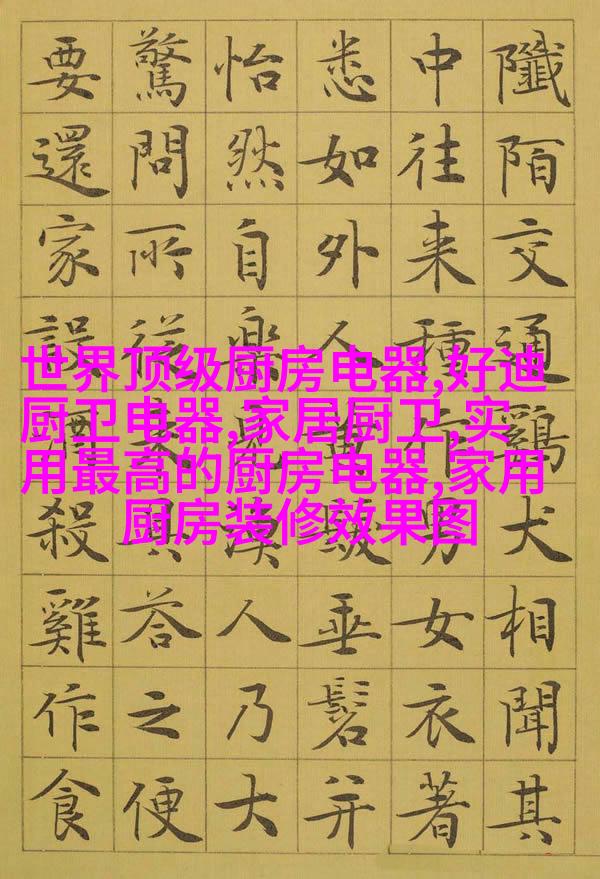 世界顶级厨房电器,好迪
厨卫电器,家居厨卫,实
用最高的厨房电器,家用
厨房装修效果图
陌交通鷄犬相聞其
中往来種作男女衣著
悉如外人黄髮垂髫并
怡然自樂見漁人乃大
驚問所從来具答之便
要還家設酒殺雞作食